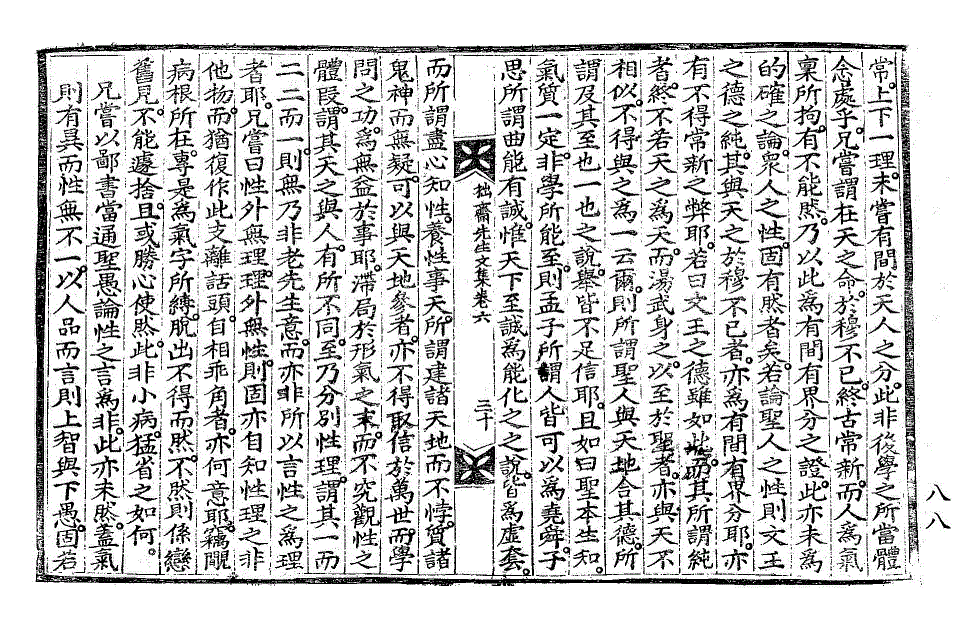 常。上下一理。未嘗有間於天人之分。此非後學之所當體
念處乎。兄嘗謂在天之命。於穆不已。終古常新。而人爲氣
稟所拘。有不能然。乃以此爲有間有界分之證。此亦未爲
的確之論。衆人之性。固有然者矣。若論聖人之性。則文王
之德之純。其與天之於穆不已者。亦爲有間有界分耶。亦
有不得常新之弊耶。若曰文王之德雖如此。而其所謂純
者。終不若天之爲天。而湯武身之。以至於聖者。亦與天不
相似。不得與之爲一云爾。則所謂聖人與天地合其德。所
謂及其至也一也之說。擧皆不足信耶。且如曰聖本生知。
氣質一定。非學所能至。則孟子所謂人皆可以爲堯舜。子
思所謂曲能有誠。惟天下至誠爲能化之之說。皆爲虛套。
拙齋先生文集卷六
三十
而所謂盡心知性。養性事天。所謂建諸天地而不悖。質諸
鬼神而無疑。可以與天地參者。亦不得取信於萬世。而學
問之功。爲無益於事耶。滯局於形氣之末。而不究觀性之
體段。謂其天之與人。有所不同。至乃分別性理。謂其一而
二二而一。則無乃非老先生意。而亦非所以言性之爲理
者耶。兄嘗曰性外無理。理外無性。則固亦自知性理之非
他物。而猶復作此支離話頭。自相乖角者。亦何意耶。竊覸
病根所在。專是爲氣字所縛。脫出不得而然。不然則係戀
舊見。不能遽捨。且或勝心使然。此非小病。猛省之如何。
兄嘗以鄙書當通聖愚論性之言爲非。此亦未然。蓋氣
則有異而性無不一。以人品而言則上智與下愚。固若
八八